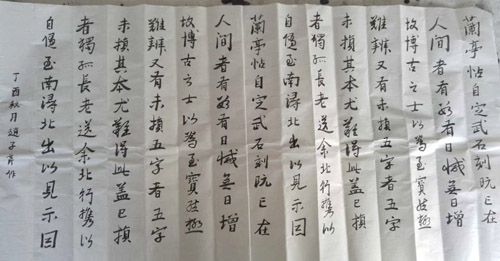 蘭亭帖自定武石刻既亡在
人间者有數有日減無日增
故博古之士以為至寶然極
難辨又有未損五字者五字
未損其本尤難得此盖已損
者獨孤長老送余北行携以
自隨至南潯北出以見示因
蘭亭帖自定武石刻既亡在
人间者有數有日減無日增
故博古之士以為至寶然極
難辨又有未損五字者五字
未損其本尤難得此盖已損
者獨孤長老送余北行携以
自隨至南潯北出以見示因
丁酉秋月趙子昂作